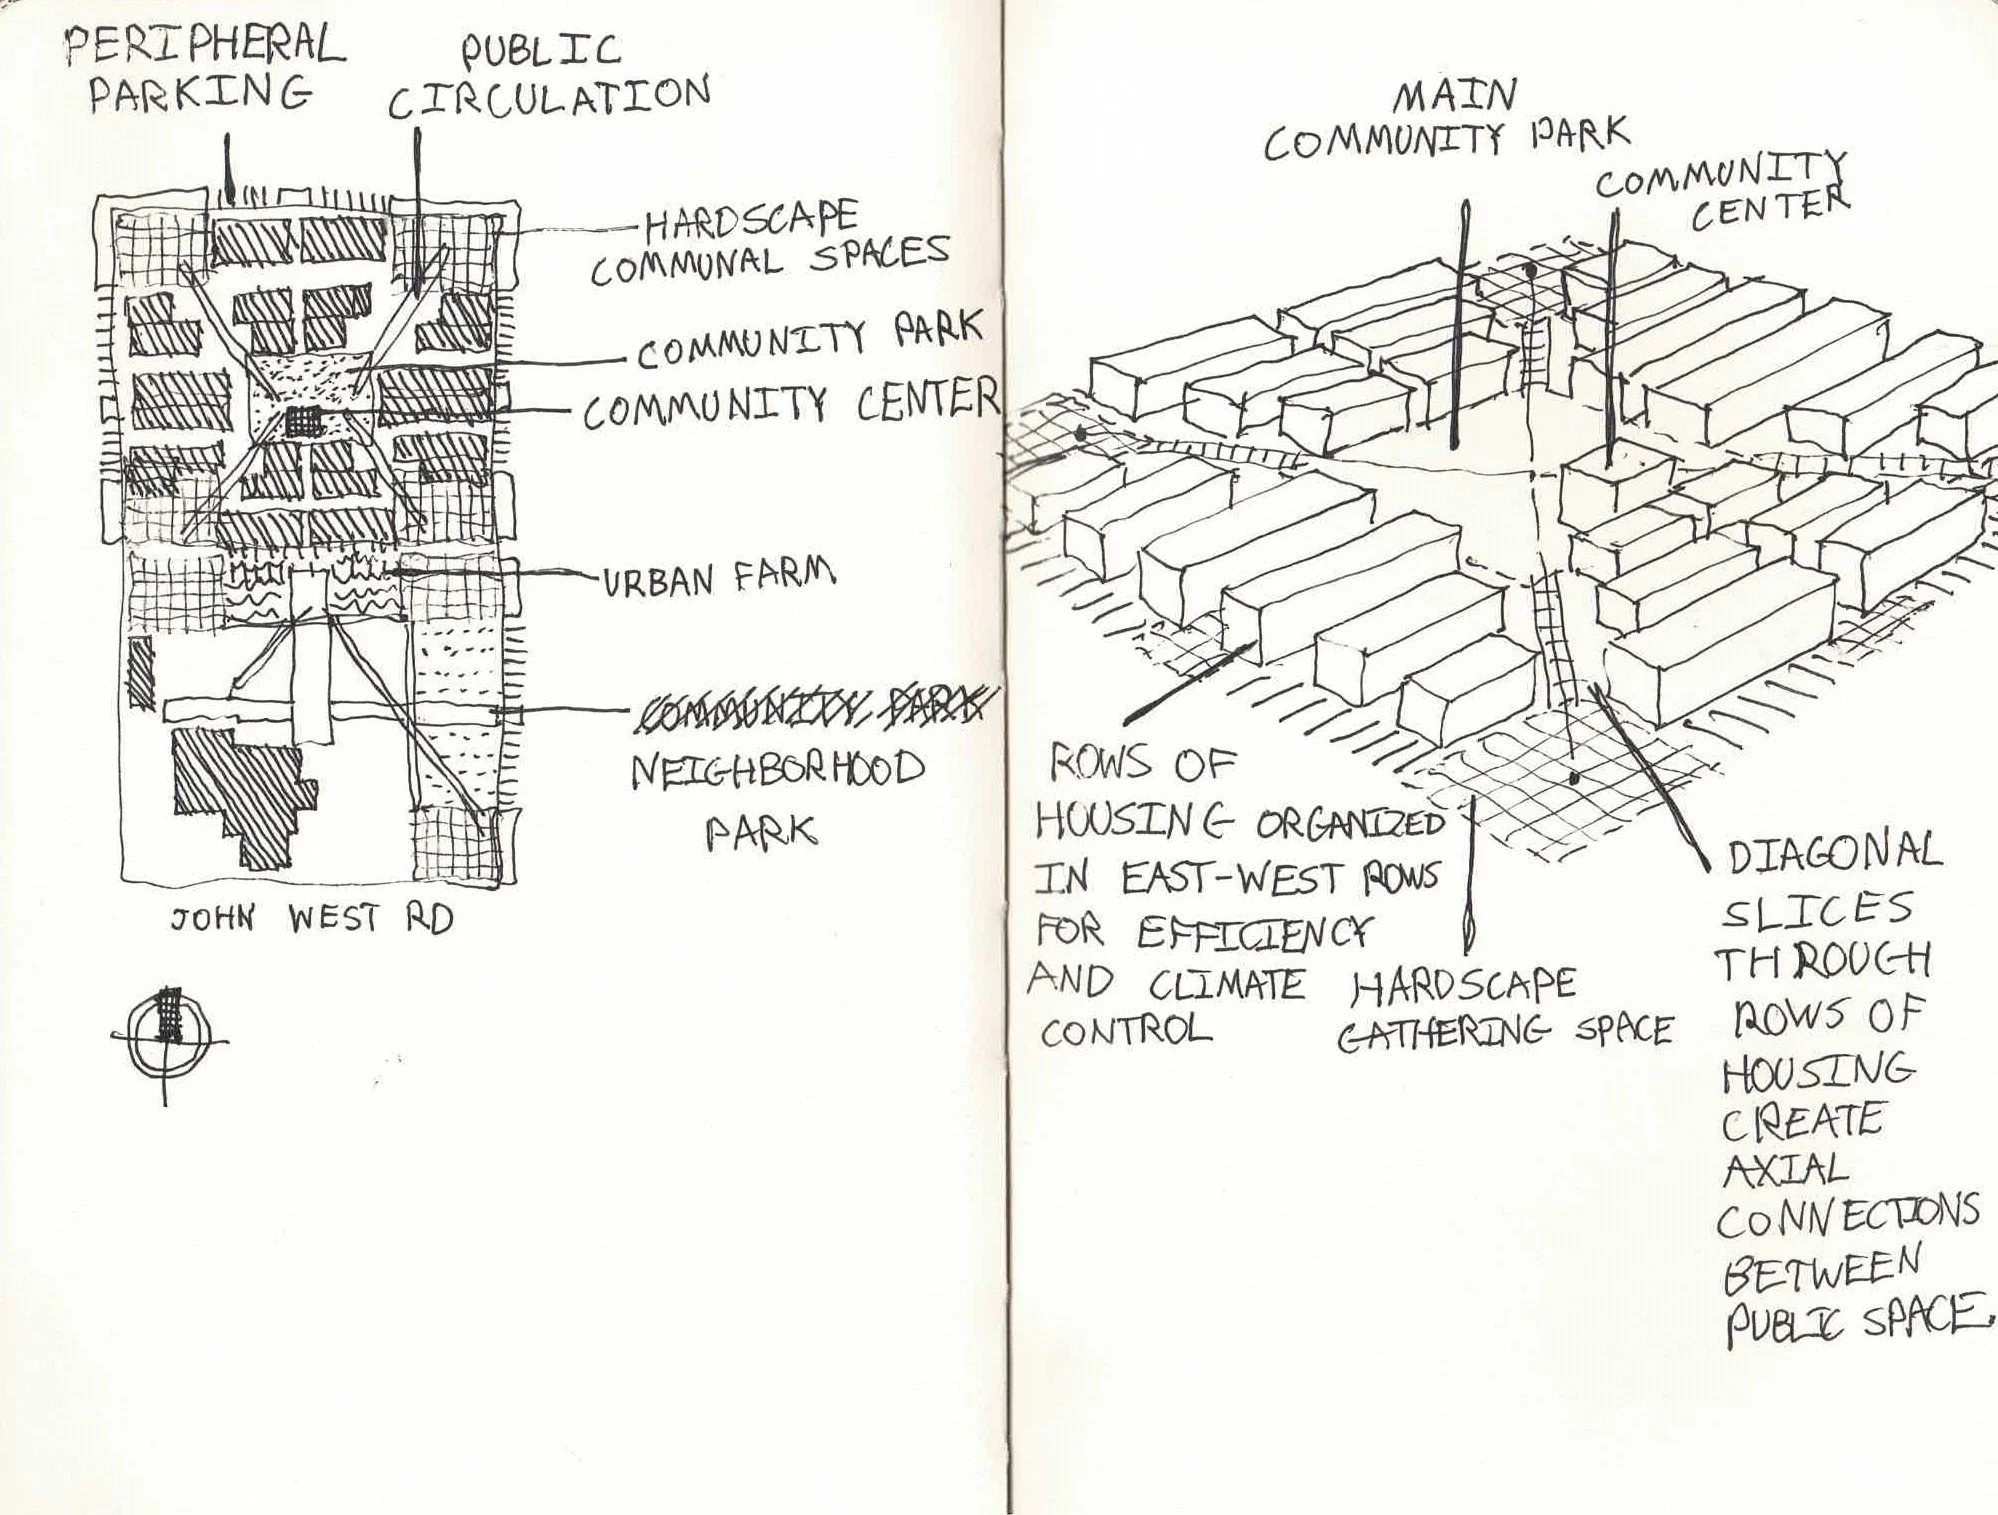 PERIPHERAL
PARKING
PUBLIC
CIRCULATION
HARDSCAPE
COMMUNAL SPACES
COMMUNITY PARK
COMMUNITY CENTER
URBAN FARM
COMMUNITY PARK
NEIGHBORHOOD
PARK
JOHN WEST RD
MAIN
COMMUNITY PARK
COMMUNITY
CENTER
ROWS OF
HOUSING ORGANIZED
IN EAST-WEST ROWS
FOR EFFICIENCY
AND CLIMATE
CONTROL
HARDSCAPE
GATHERING SPACE
DIAGONAL
SLICES
THROUGH
ROWS OF
HOUSING
CREATE
AXIAL
CONNECTIONS
BETWEEN
PUBLIC SPACE.